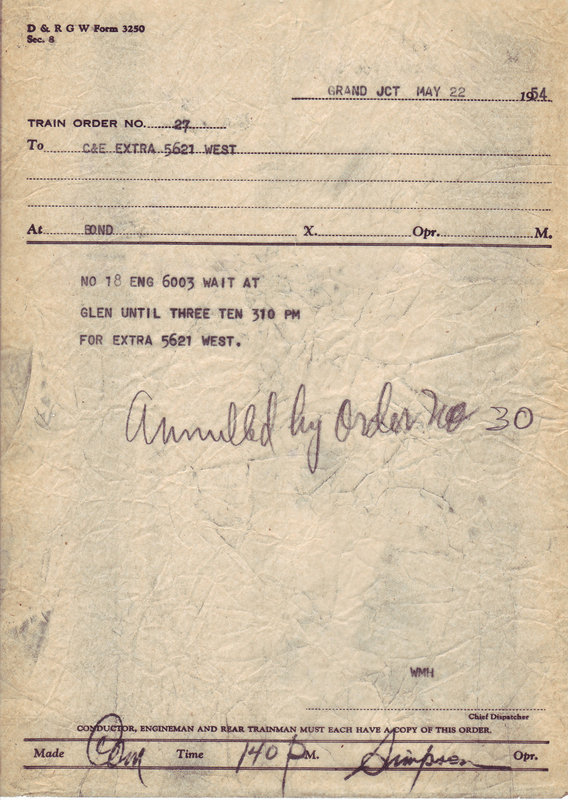 D & R G W Form 3250
Sec. 8
GRAND JCT MAY 22 1954
TRAIN ORDER NO. 27
To C&E EXTRA 5621 WEST
At BOND X. Opr. M.
NO 18 ENG 6003 WAIT AT
GLEN UNTIL THREE TEN 310 PM
FOR EXTRA 5621 WEST.
Annulled by Order No 30
WMH
Chief Dispatcher
CONDUCTOR, ENGINEMAN AND REAR TRAINMAN MUST EACH HAVE A COPY OF THIS ORDER.
Made Com Time 140 P M. Simpson Opr.